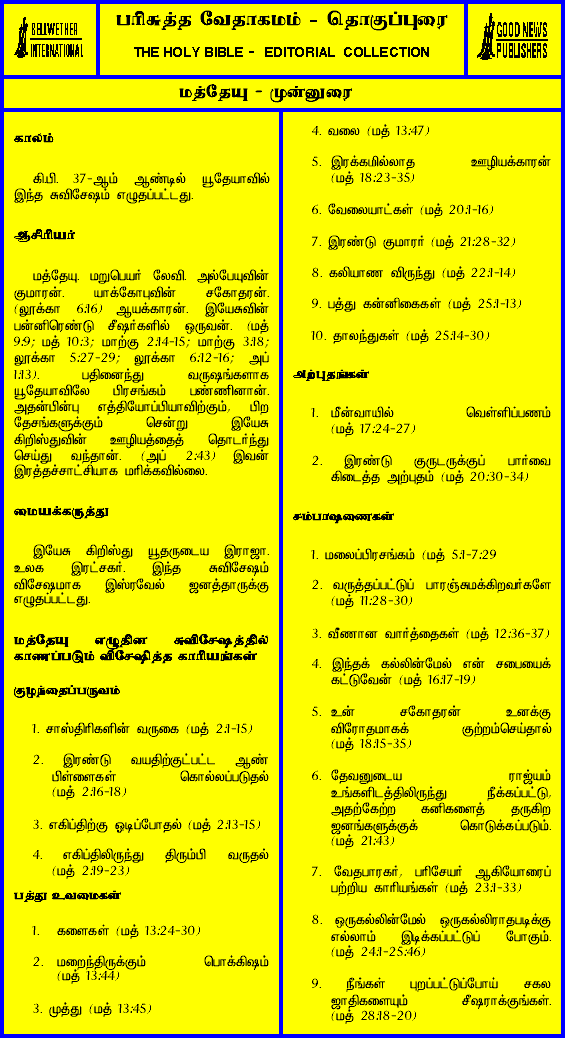 BELLWETHER
INTERNATIONAL
பரிசுத்த வேதாகமம் - தொகுப்புரை
THE HOLY BIBLE - EDITORIAL COLLECTION
GOOD NEWS
PUBLISHERS
மத்தேயு - முன்னுரை
காலம்
கி.பி. 37-ஆம் ஆண்டில் யூதேயாவில்
இந்த சுவிசேஷம் எழுதப்பட்டது.
ஆசிரியர்
மத்தேயு. மறுபெயர் லேவி. அல்பேயுவின்
குமாரன். யாக்கோபுவின் சகோதரன்.
(லூக்கா 6:16) ஆயக்காரன். இயேசுவின்
பன்னிரெண்டு சீஷர்களில் ஒருவன். (மத்
9:9; மத் 10:3; மாற்கு 2:14-15; மாற்கு 3:18;
லூக்கா 5:27-29; லூக்கா 6:12-16; அப்
1:13). பதினைந்து வருஷங்களாக
யூதேயாவிலே பிரசங்கம் பண்ணினான்.
அதன்பின்பு எத்தியோப்பியாவிற்கும், பிற
தேசங்களுக்கும் சென்று இயேசு
கிறிஸ்துவின் ஊழியத்தைத் தொடர்ந்து
செய்து வந்தான். (அப் 2:43) இவன்
இரத்தச்சாட்சியாக மரிக்கவில்லை.
மையக்கருத்து
இயேசு கிறிஸ்து யூதருடைய இராஜா.
உலக இரட்சகர். இந்த சுவிசேஷம்
விசேஷமாக இஸ்ரவேல் ஜனத்தாருக்கு
எழுதப்பட்டது.
மத்தேயு எழுதின சுவிசேஷத்தில்
காணப்படும் விசேஷித்த காரியங்கள்
குழந்தைப்பருவம்
1. சாஸ்திரிகளின் வருகை (மத் 2:1-15)
2. இரண்டு வயதிற்குட்பட்ட ஆண்
பிள்ளைகள் கொல்லப்படுதல்
(மத் 2:16-18)
3. எகிப்திற்கு ஓடிப்போதல் (மத் 2:13-15)
4. எகிப்திலிருந்து திரும்பி வருதல்
(மத் 2:19-23)
பத்து உவமைகள்
1. களைகள் (மத் 13:24-30)
2. மறைந்திருக்கும் பொக்கிஷம்
(மத் 13:44)
3. முத்து (மத் 13:45)
4. வலை (மத் 13:47)
5. இரக்கமில்லாத ஊழியக்காரன்
(மத் 18:23-35)
6. வேலையாட்கள் (மத் 20:1-16)
7. இரண்டு குமாரர் (மத் 21:28-32)
8. கலியாண விருந்து (மத் 22:1-14)
9. பத்து கன்னிகைகள் (மத் 25:1-13)
10. தாலந்துகள் (மத் 25:14-30)
அற்புதங்கள்
1. மீன்வாயில் வெள்ளிப்பணம்
(மத் 17:24-27)
2. இரண்டு குருடருக்குப் பார்வை
கிடைத்த அற்புதம் (மத் 20:30-34)
சம்பாஷணைகள்
1. மலைப்பிரசங்கம் (மத் 5:1-7:29
2. வருத்தப்பட்டுப் பாரஞ்சுமக்கிறவர்களே
(மத் 11:28-30)
3. வீணான வார்த்தைகள் (மத் 12:36-37)
4. இந்தக் கல்லின்மேல் என் சபையைக்
கட்டுவேன் (மத் 16:17-19)
5. உன் சகோதரன் உனக்கு
விரோதமாகக் குற்றம்செய்தால்
(மத் 18:15-35)
6. தேவனுடைய ராஜ்யம்
உங்களிடத்திலிருந்து நீக்கப்பட்டு,
அதற்கேற்ற கனிகளைத் தருகிற
ஜனங்களுக்குக் கொடுக்கப்படும்.
(மத் 21:43)
7. வேதபாரகர், பரிசேயர் ஆகியோரைப்
பற்றிய காரியங்கள் (மத் 23:1-33)
8. ஒருகல்லின்மேல் ஒருகல்லிராதபடிக்கு
எல்லாம் இடிக்கப்பட்டுப் போகும்.
(மத் 24:1-25:46)
9. நீங்கள் புறப்பட்டுப்போய் சகல
ஜாதிகளையும் சீஷராக்குங்கள்.
(மத் 28:18-20)